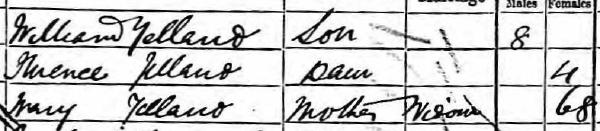 Males Females
William Yelland Son 8
Florence Yelland Daur 4
Mary Yelland Mother Widow 68